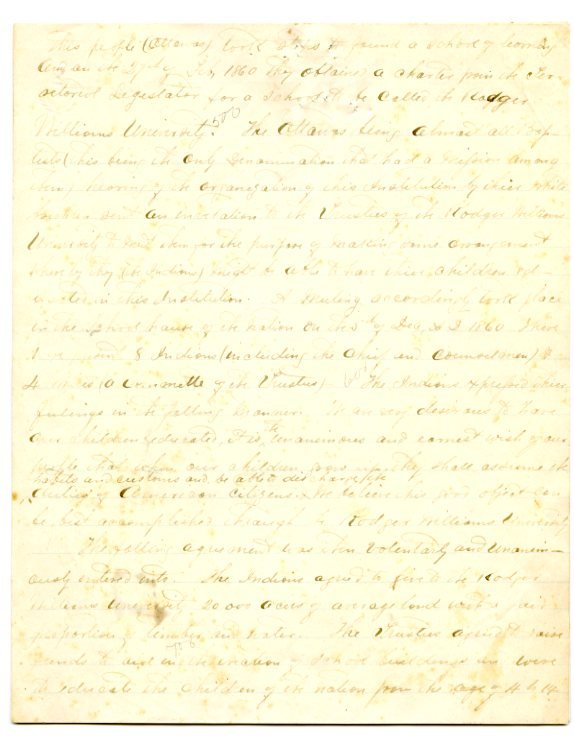 This people (Ottawas) took steps to found a school of learning
and on the 27th of Feb, 1860 they obtained a charter from the Ter-
ritorial Legislator for a School to be called the Rodger
Williams University. 500 The Ottawas being almost all Bap-
tists (this being the only Denomination that had a Mission among
them) hearing of the organization of this Institution by their white
an invitation to the Trustees of the Rodger Williams
University to meet them for the purpose of making some arrangement
whereby they (the Indians) might be able to have their children ed-
ucated in this Institution. A meeting accordingly took place
in the school house of the nation on the 5th of Dec, A D 1860. There
8 Indians (including the Chief and Councilmen) &
4 whites (a committe of the Trustees). The Indians expressed their
feelings in the following manner. We are very desirous to have
our children educated, it is the unanimous and earnest wish of our
people that when our children grow up they shall assume the
habits and customs and be able to discharge the
duties of American citizens. We believe this good object can
be best accomplished through the Rodger Williams University
The following agreement was then voluntarly and unanim-
ously entered into. The Indians agreed to give to the Rodger
Williams University 20 000 acres of average land with a fair
proportion of timber and water. The Trustees agreed to raise
funds to aid in the erection of School buildings and were
to educate the children of the nation from the age of 4 to 14